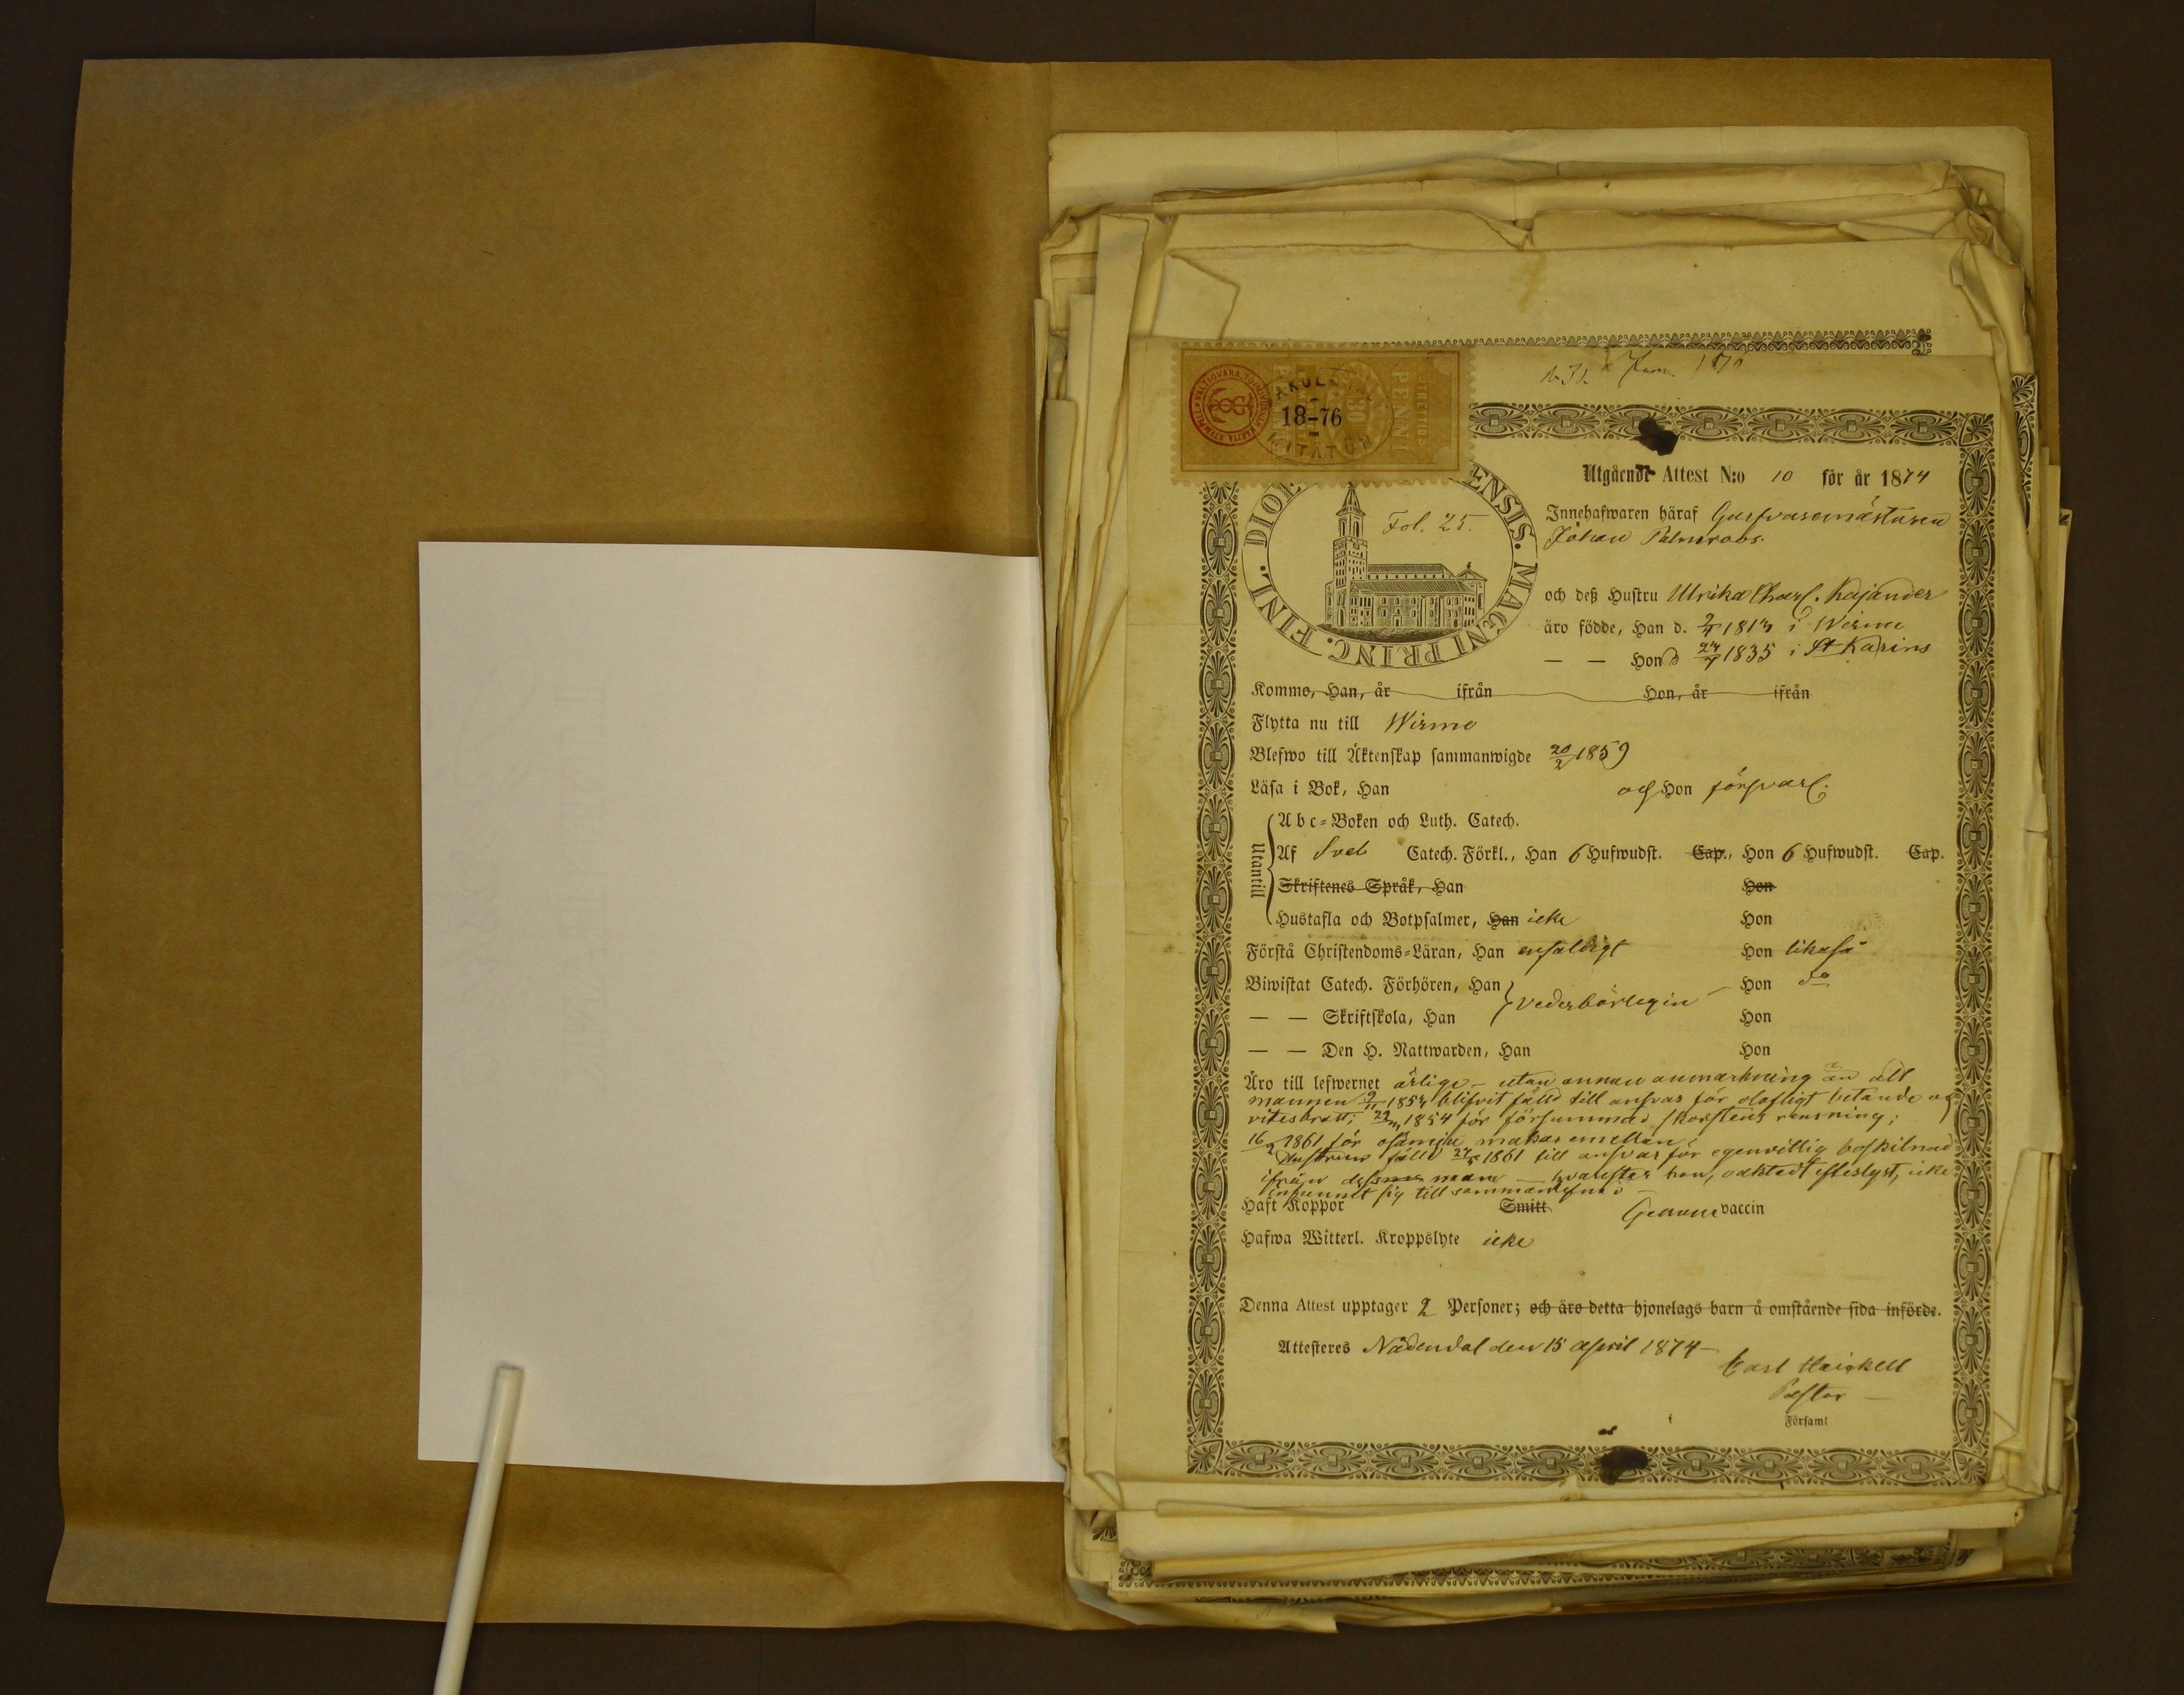 N. 31. d Jun. 1876
VALTIOVARA-TOIMITUSKUNNAN KARTA STEMPELI
18-76
MITATÖN
PENNI
TRETTIO
30
DIOE ENSIS. MAGNI PRINC. FINL.
Fol. 25.
Utgående Attest N:o 10 för år 1874
Innehafwaren häraf Garfvaremästaren
Johan Palmroos.
och deß Hustru Ulrika Charl. Kajander
äro födde, Han d. i Wirmo
— — Hon d 1835 i St Karins
Kommo, Han, år ifrån Hon, år ifrån
Flytta nu till Wirmo
Blefwo till Äktenskap sammanwigde 20/2 1859
Läsa i Bok, Han och Hon försvarl.
Utantill
Abc=Boken och Luth. Catech.
Af Sveb Catech. Förkl., Han 6 Hufwudst. Cap., Hon 6 Hufwudst. Cap.
Skriftenes Språk, Han Hon
Hustafla och Botpsalmer, Han icke Hon
Förstå Christendoms=Läran, Han enfaldigt Hon likaså
Biwistat Catech. Förhören, Han vederbörligen Hon do
— — Skriftskola, Han Hon
— — Den H. Nattwarden, Han Hon
Äro till lefwernet ärlige – utan annan anmärkning än att
mannen blifvit fälld till ansvar för olofligt och
vitesbrott; 1854 för försummad skorstens rensning;
16/2 1861 för osämja makar emellan;
Hustrun fälld 1861 till ansvar för egenvillig boskilnad
ifrån dess man – hvarefter hon, oaktadt efterlyst, icke
infunnit sig till sammanlefnad –
Haft Koppor Smitt Genom vaccin
Hafwa Witterl. Kroppslyte icke
Denna Attest upptager 2 Personer; och äro detta hjonelags barn å omstående sida införde.
Attesteres Nådendal den 15 April 1874 –
Carl
Pastor
Församl